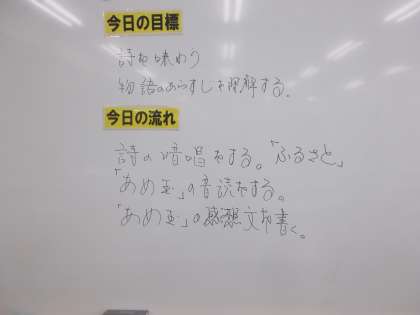 今日の目標
詩を味わう
物語のあらすじを理解する。
今日の流れ
詩の暗唱をする。「ふるさと」
「あめ玉」の音読をする。
「あめ玉」の感想文を書く。